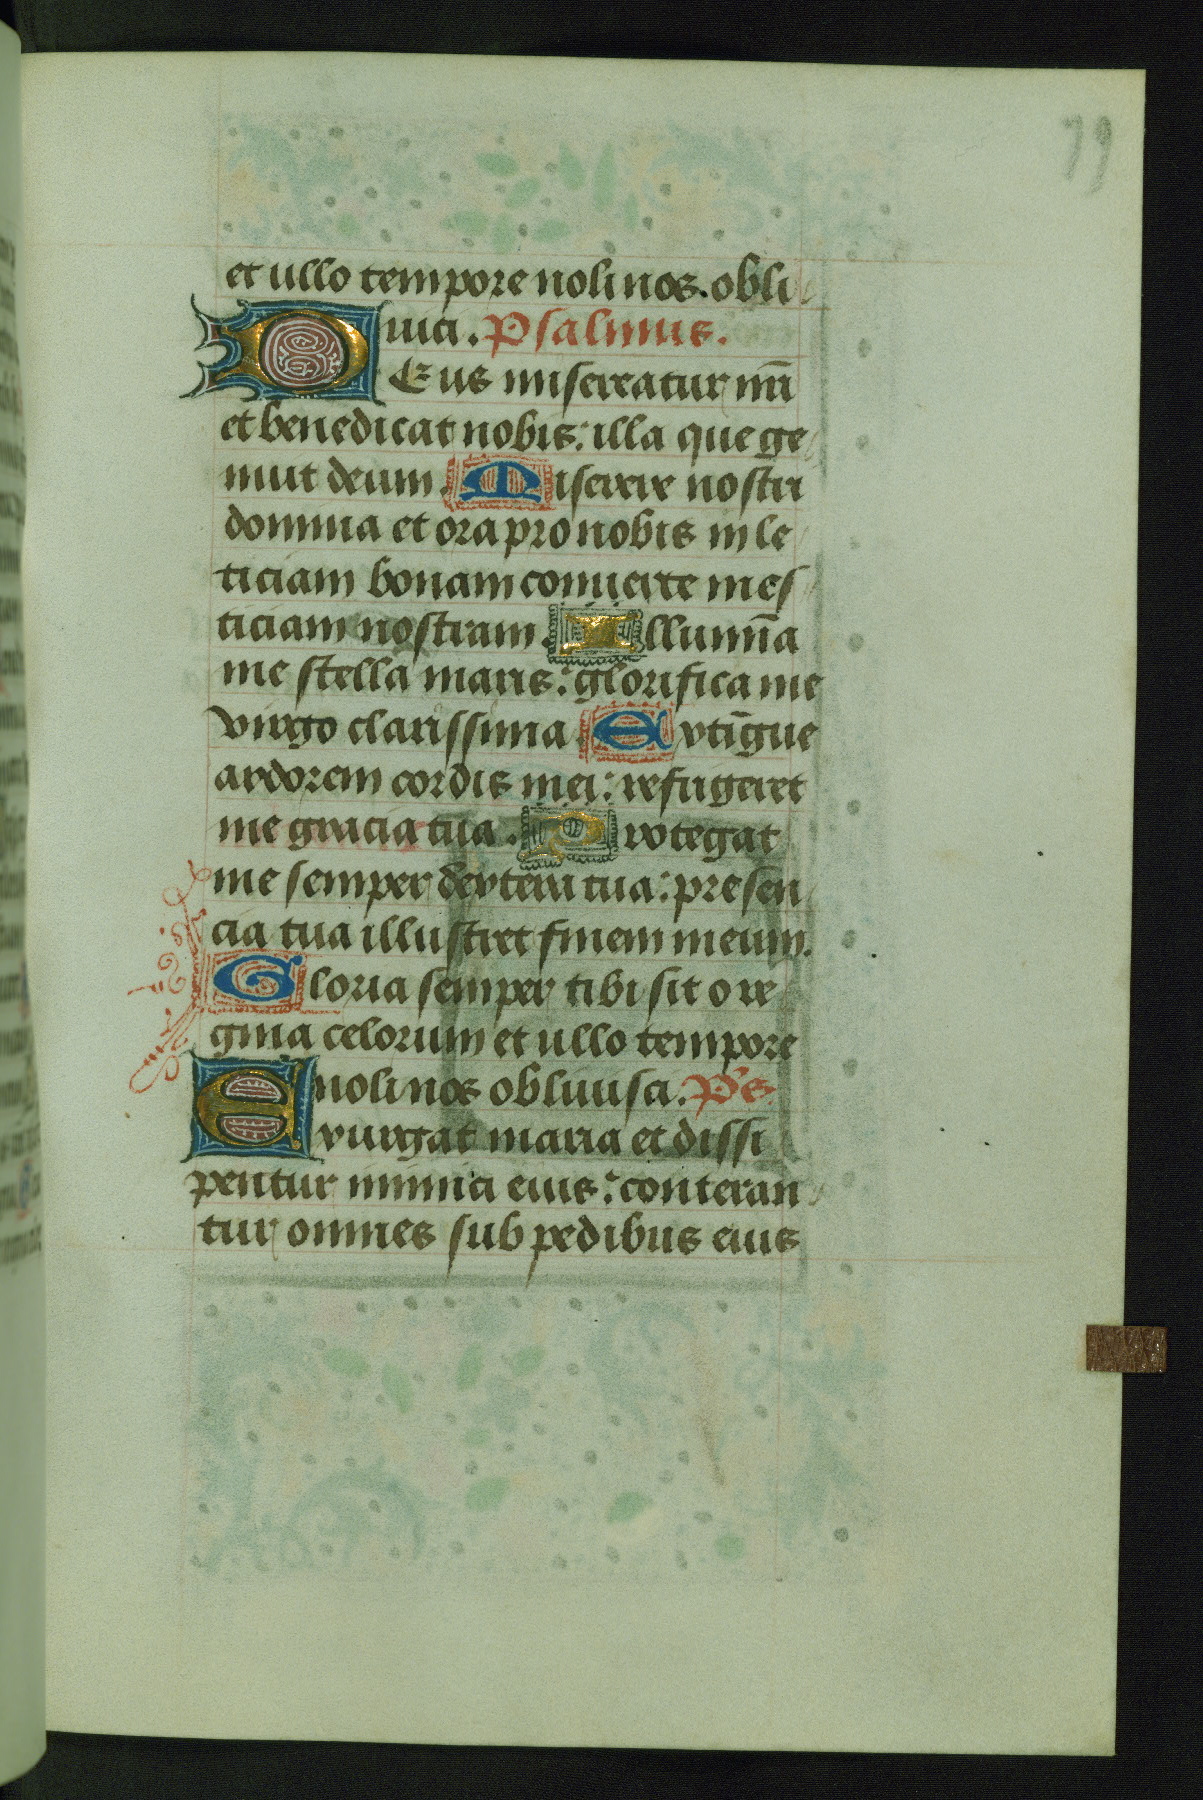 79
et ullo tempore noli nos. obli
uici. Psalmus.
DEus misereatur nr̄i
et benedicat nobis: illa que ge
nuit deum. Miserere nostri
domina et ora pro nobis in le
ticiam bonam conuerte mes
ticiam nostram. Illumīa
me stella maris: glorifica me
virgo clarissima. Extīgue
ardorem cordis mei: refrigeret
me gracia tua. Protegat
me semper dextera tua: presen
cia tua illustret finem meum.
Gloria semper tibi sit o re
gina celorum et ullo tempore
noli nos obliuisci. Ps
Exurgat maria et dissi
pentur inimici eius: conteran
tur omnes sub pedibus eius